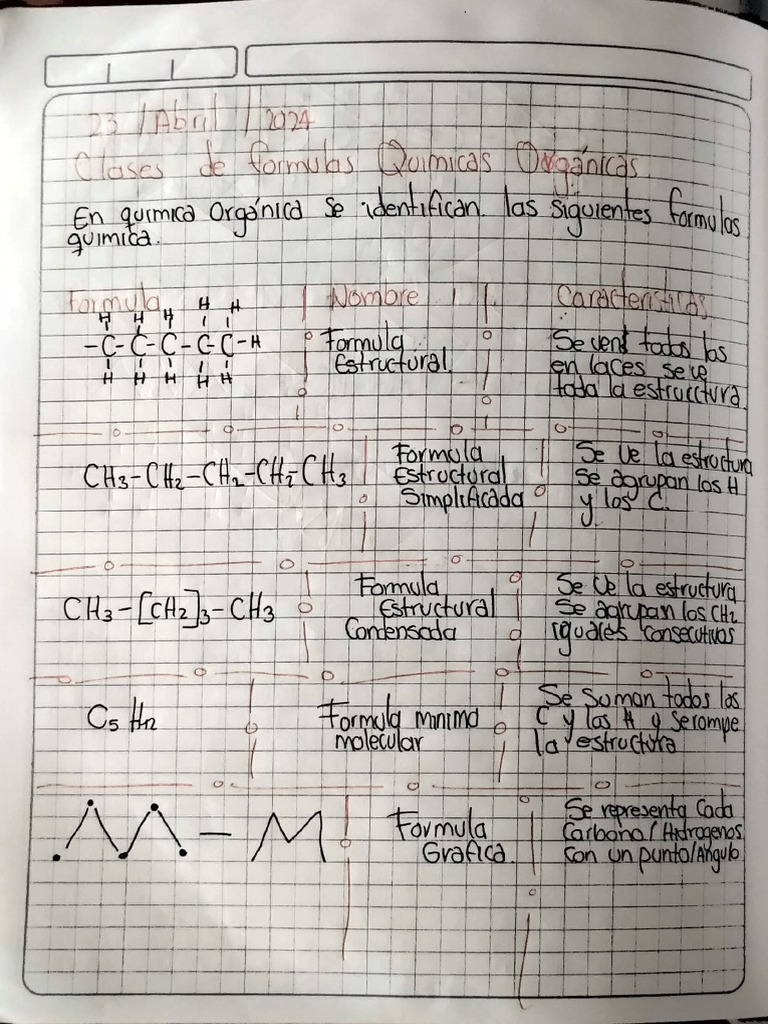 23 / Abril / 2024
Clases de formulas Quimicas Orgánicas
En quimica Orgánica se identifican las siguientes formulas
quimica.
Formula | Nombre | Caracteristicas
H H H H H
-C-C-C-C-C-H
H H H H H
Formula
Estructural
Se vent todos los
en laces se ve
toda la estrucctura
CH3-CH2-CH2-CH2-CH3
Formula
Estructural
Simplificada
Se Ve la estructura
Se agrupan los H
y los C.
CH3-[CH2]3-CH3
Formula
Estructural
Condensada
Se Ve la estructura
Se agrupan los CH2
iguales consecutivos
C5 H12
Formula minima
molecular
Se Suman todos los
C y los H y se rompe
la estructura
Formula
Grafica.
Se representa Cada
Carbono/Hidrogenos
con un punto/Angulo